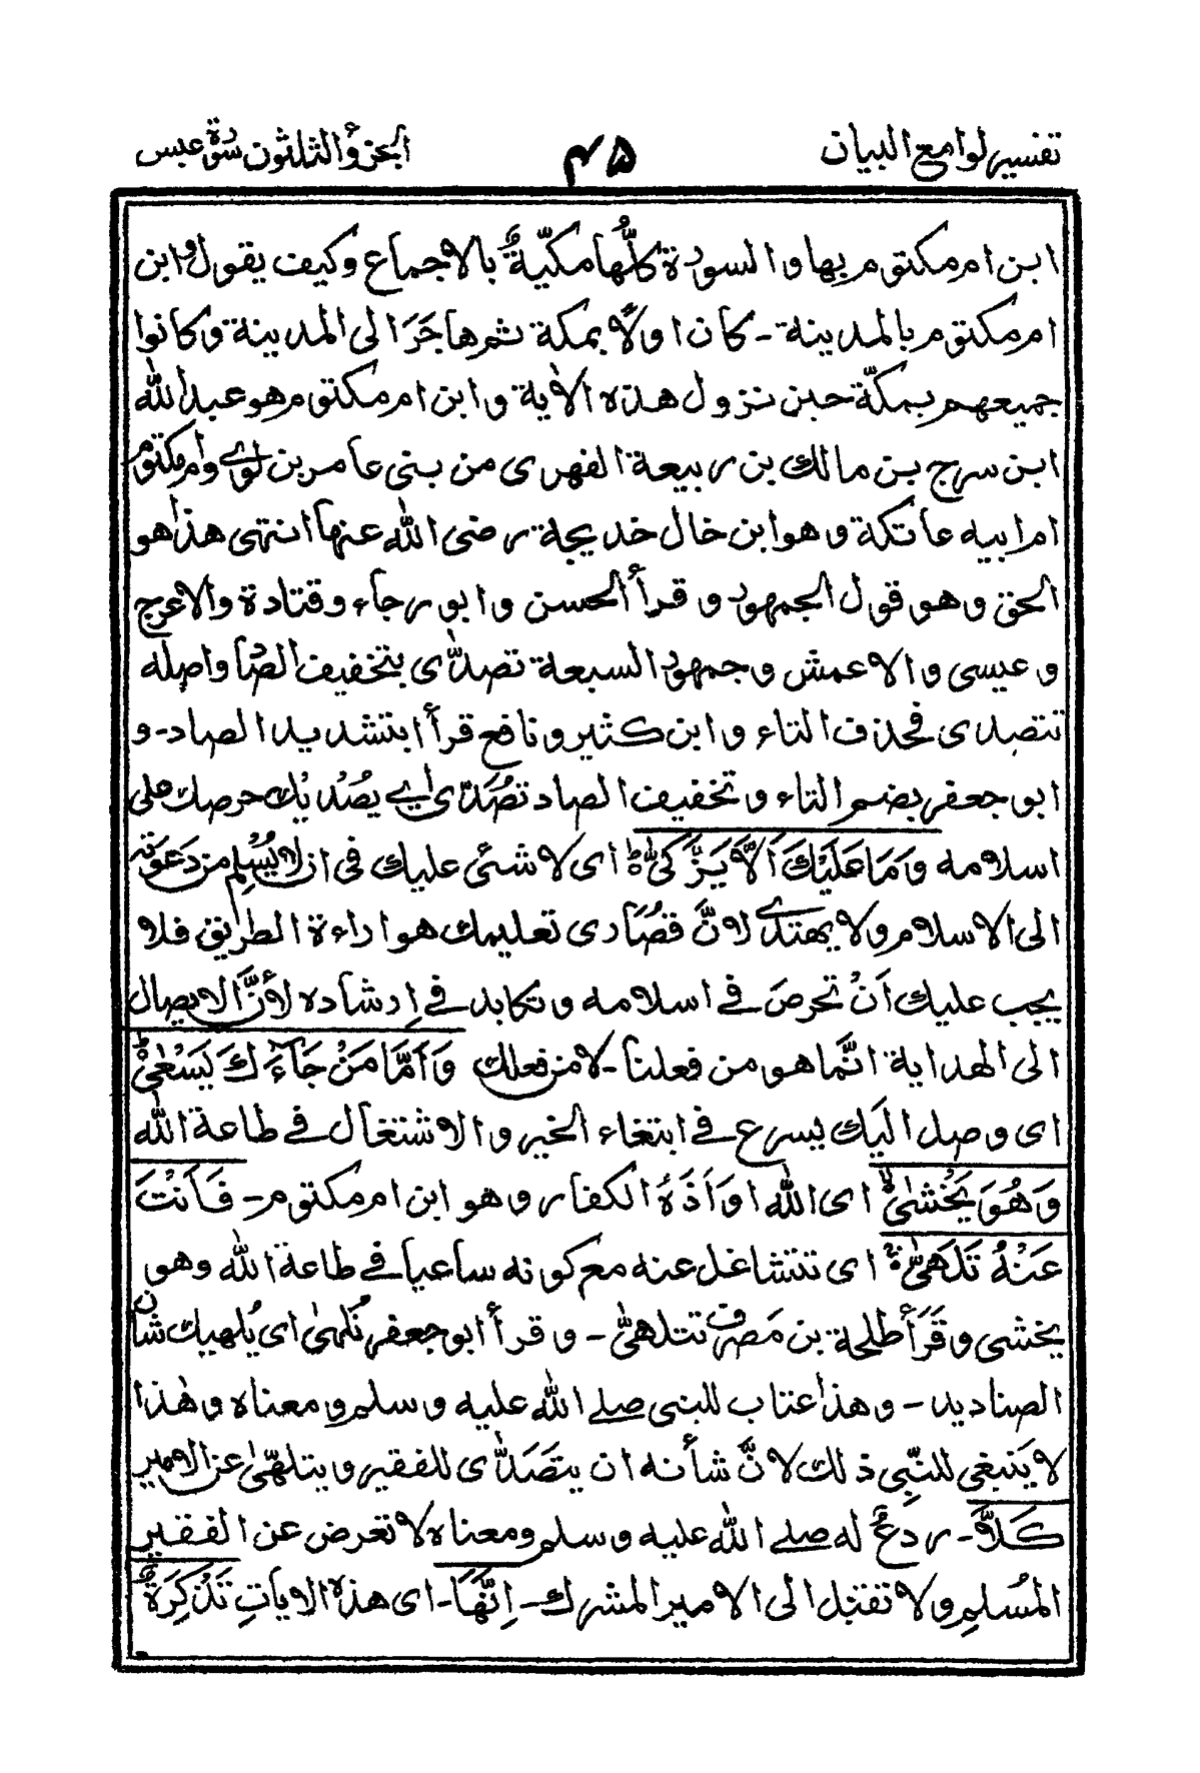 تفسیر لوامع البیان ۴۵ الجزؤ الثلثون سورة عبس
ابن ام مکتوم بها و السورة کلُّها مکیّةٌ بالاجماع وکیف یقول وابن
ام مکتوم بالمدینة - کان اولًا بمکة ثم هاجَرَ الی المدینة وکانوا
جمیعهم بمکّة حین نزول هذه الاٰیة وابن ام مکتوم هو عبد اللّٰه
ابن سرج بن مالك بن ربیعة الفهری من بنی عامر بن لوے وام مکتوم
ام ابیه عاتکة وهو ابن خال خدیجة رضی اللّٰه عنها انتهی هذا هو
الحق وهو قول الجمهور و قرأ الحسن وابو رجاء وقتادة والاعرج
وعیسی والاعمش وجمهور السبعة تصدّٰی بتخفیف الصاد واصله
تتصدی فحذف التاء وابن کثیر ونافع قرأ ابتشدید الصاد - و
ابو جعفر بضم التاء وتخفیف الصاد تُصَدّی اے یصُدیك حرصك علی
اسلامه وَمَا عَلَیْكَ اَلَّا یَزَّکّٰیؕ ای لا شئ علیك فی ان لا یُسْلِم من دَعَوته
الی الاسلام ولا یهتدے لانَّ قصُارٰی تعلیمك هو اراءة الطریق فلا
یجب علیك اَنْ تحرصَ فے اسلامه وتکابد فے اِرشاده لأنَّ الایصال
الی الهدایة انّما هو من فعلنا - لا من فعلك وَاَمَّا مَنْ جَآءَكَ یَسْعٰیۙ
ای وصل الیك یسرع فے ابتغاء الخیر والاشتغال فے طاعة اللّٰه
وَهُوَ یَخْشٰیۙ ای اللّٰه او اَذَهُ الکفار وهو ابن ام مکتوم - فَاَنْتَ
عَنْهُ تَلَهّٰیۚ ای تتشاغل عنه مع کونه ساعیا فے طاعة اللّٰه وهو
یخشی وقَرَأ طلحة بن مَصرف تتلهیّٰ - وقرأ ابو جعفر تُلهیٰ ای یُلهیك شان
الصنادید - وهذا عتاب للنبی صلے اللّٰه علیه وسلم ومعناه وهٰذا
لا یَنبغی للنّبِی ذلك لانَّ شأنه ان یتَصَدّٰی للفقیر ویتلهّیٰ عن الامیر
کَلَّاۤ - رَدعٌ له صلے اللّٰه علیه وسلم ومعناه لا تعرض عن الفقیر
المُسلمِ ولا تقبل الی الامیر المشرك - اِنَّهَا - ای هذه الایاتِ تَذْکِرَةٌۚ